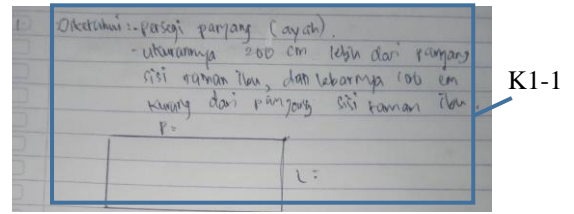 1. Diketahui : - persegi panjang (ayah).
- ukurannya 200 cm lebih dari panjang
sisi taman ibu, dan lebarnya 100 cm
kurang dari panjang sisi taman ibu.
P =
L =
K1-1